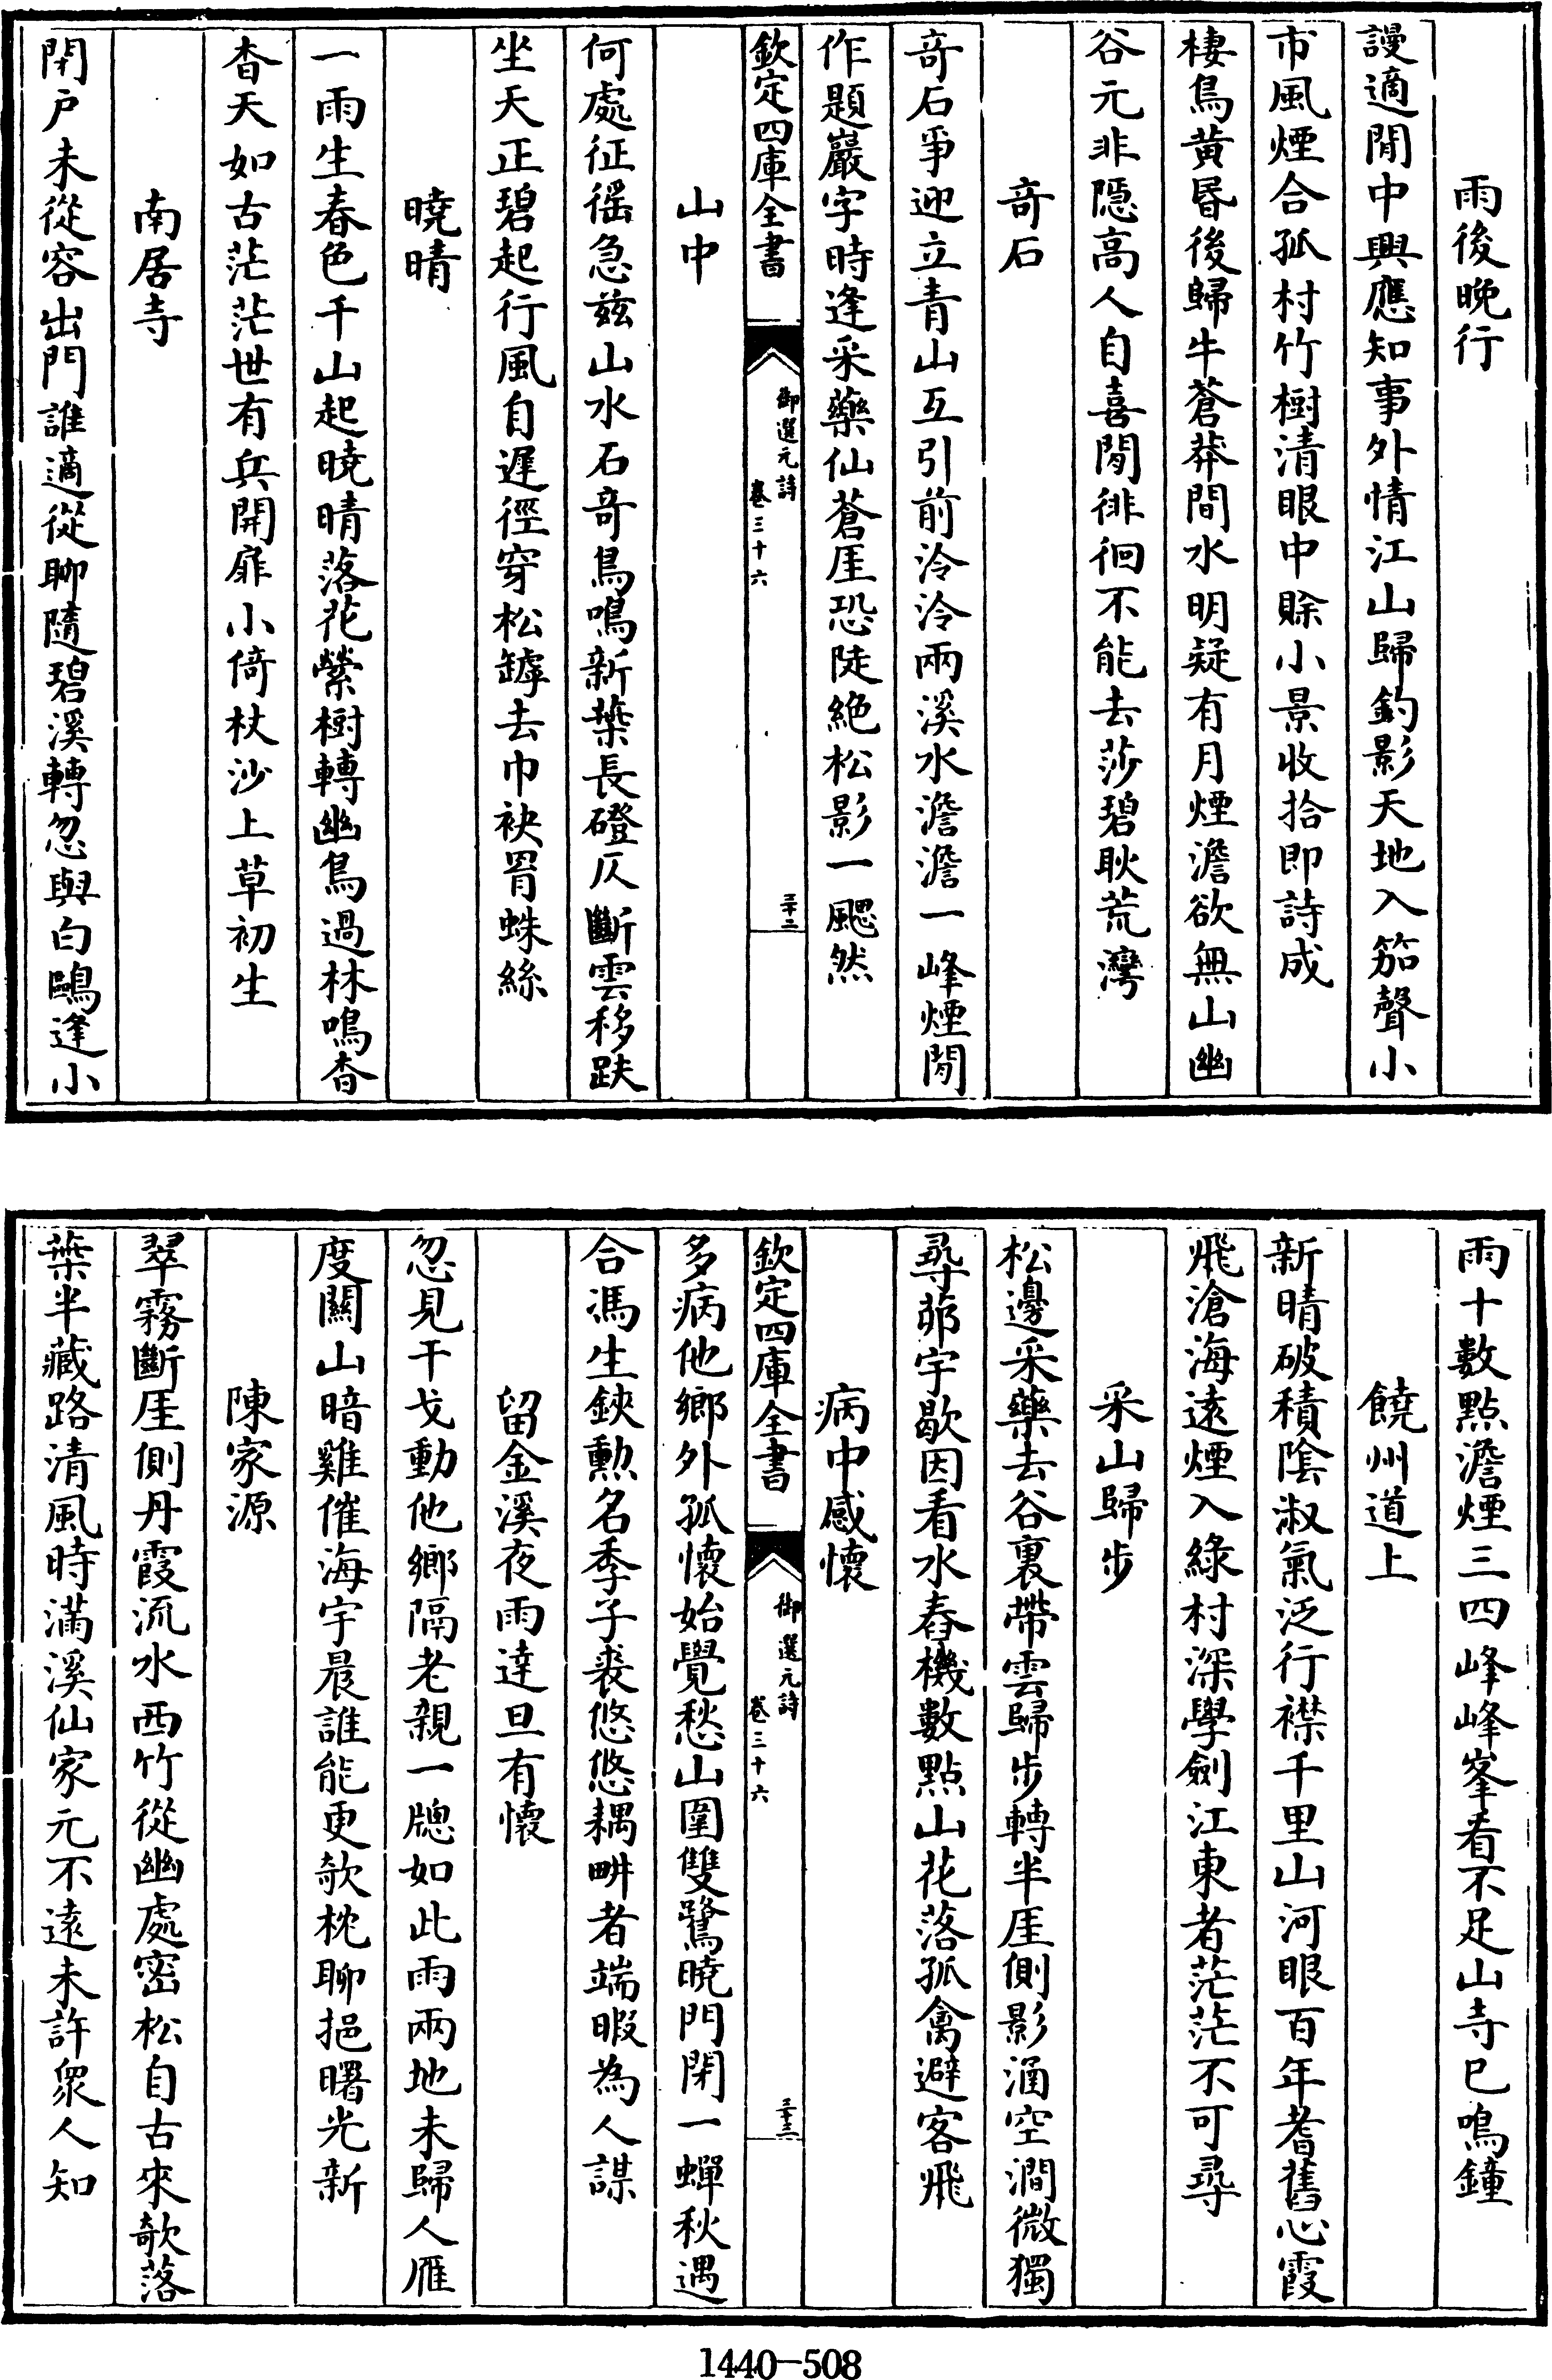 雨後晚行
謾適閒中興應知事外情江山歸釣影天地入笳聲小
市風煙合孤村竹樹清眼中賒小景收拾即詩成
棲鳥黃昏後歸牛蒼莽間水明疑有月煙澹欲無山幽
谷元非隱高人自喜閒徘徊不能去莎碧耿荒灣
竒石
竒石爭迎立青山互引前泠泠兩溪水澹澹一峰煙閒
作題巖字時逢采藥仙蒼厓恐陡絶松影一颸然
欽定四庫全書
御選元詩
卷三十六
三十二
山中
何處征徭急兹山水石竒鳥鳴新葉長磴仄斷雲移趺
坐天正碧起行風自遲徑穿松罅去巾袂罥蛛絲
曉晴
一雨生春色千山起曉晴落花縈樹轉幽鳥過林鳴杳
杳天如古茫茫世有兵開扉小倚杖沙上草初生
南居寺
閉户未從容出門誰適從聊隨碧溪轉忽與白鷗逢小
雨十數點澹煙三四峰峰峯看不足山寺已鳴鐘
饒州道上
新晴破積陰淑氣泛行襟千里山河眼百年耆舊心霞
飛滄海遠煙入綠村深學劍江東者茫茫不可尋
采山歸步
松邊采藥去谷裏帶雲歸步轉半厓側影涵空澗微獨
尋茆宇歇因看水舂機數點山花落孤禽避客飛
病中感懷
欽定四庫全書
御選元詩
卷三十六
三十三
多病他鄉外孤懷始覺愁山圍雙鷺曉門閉一蟬秋遇
合馮生鋏勲名季子裘悠悠耦畊者端暇為人謀
留金溪夜雨達旦有懷
忽見干戈動他鄉隔老親一牕如此雨兩地未歸人雁
度關山暗雞催海宇晨誰能更欹枕聊挹曙光新
陳家源
翠霧斷厓側丹霞流水西竹從幽處密松自古來欹落
葉半藏路清風時滿溪仙家元不遠未許衆人知
1440—508